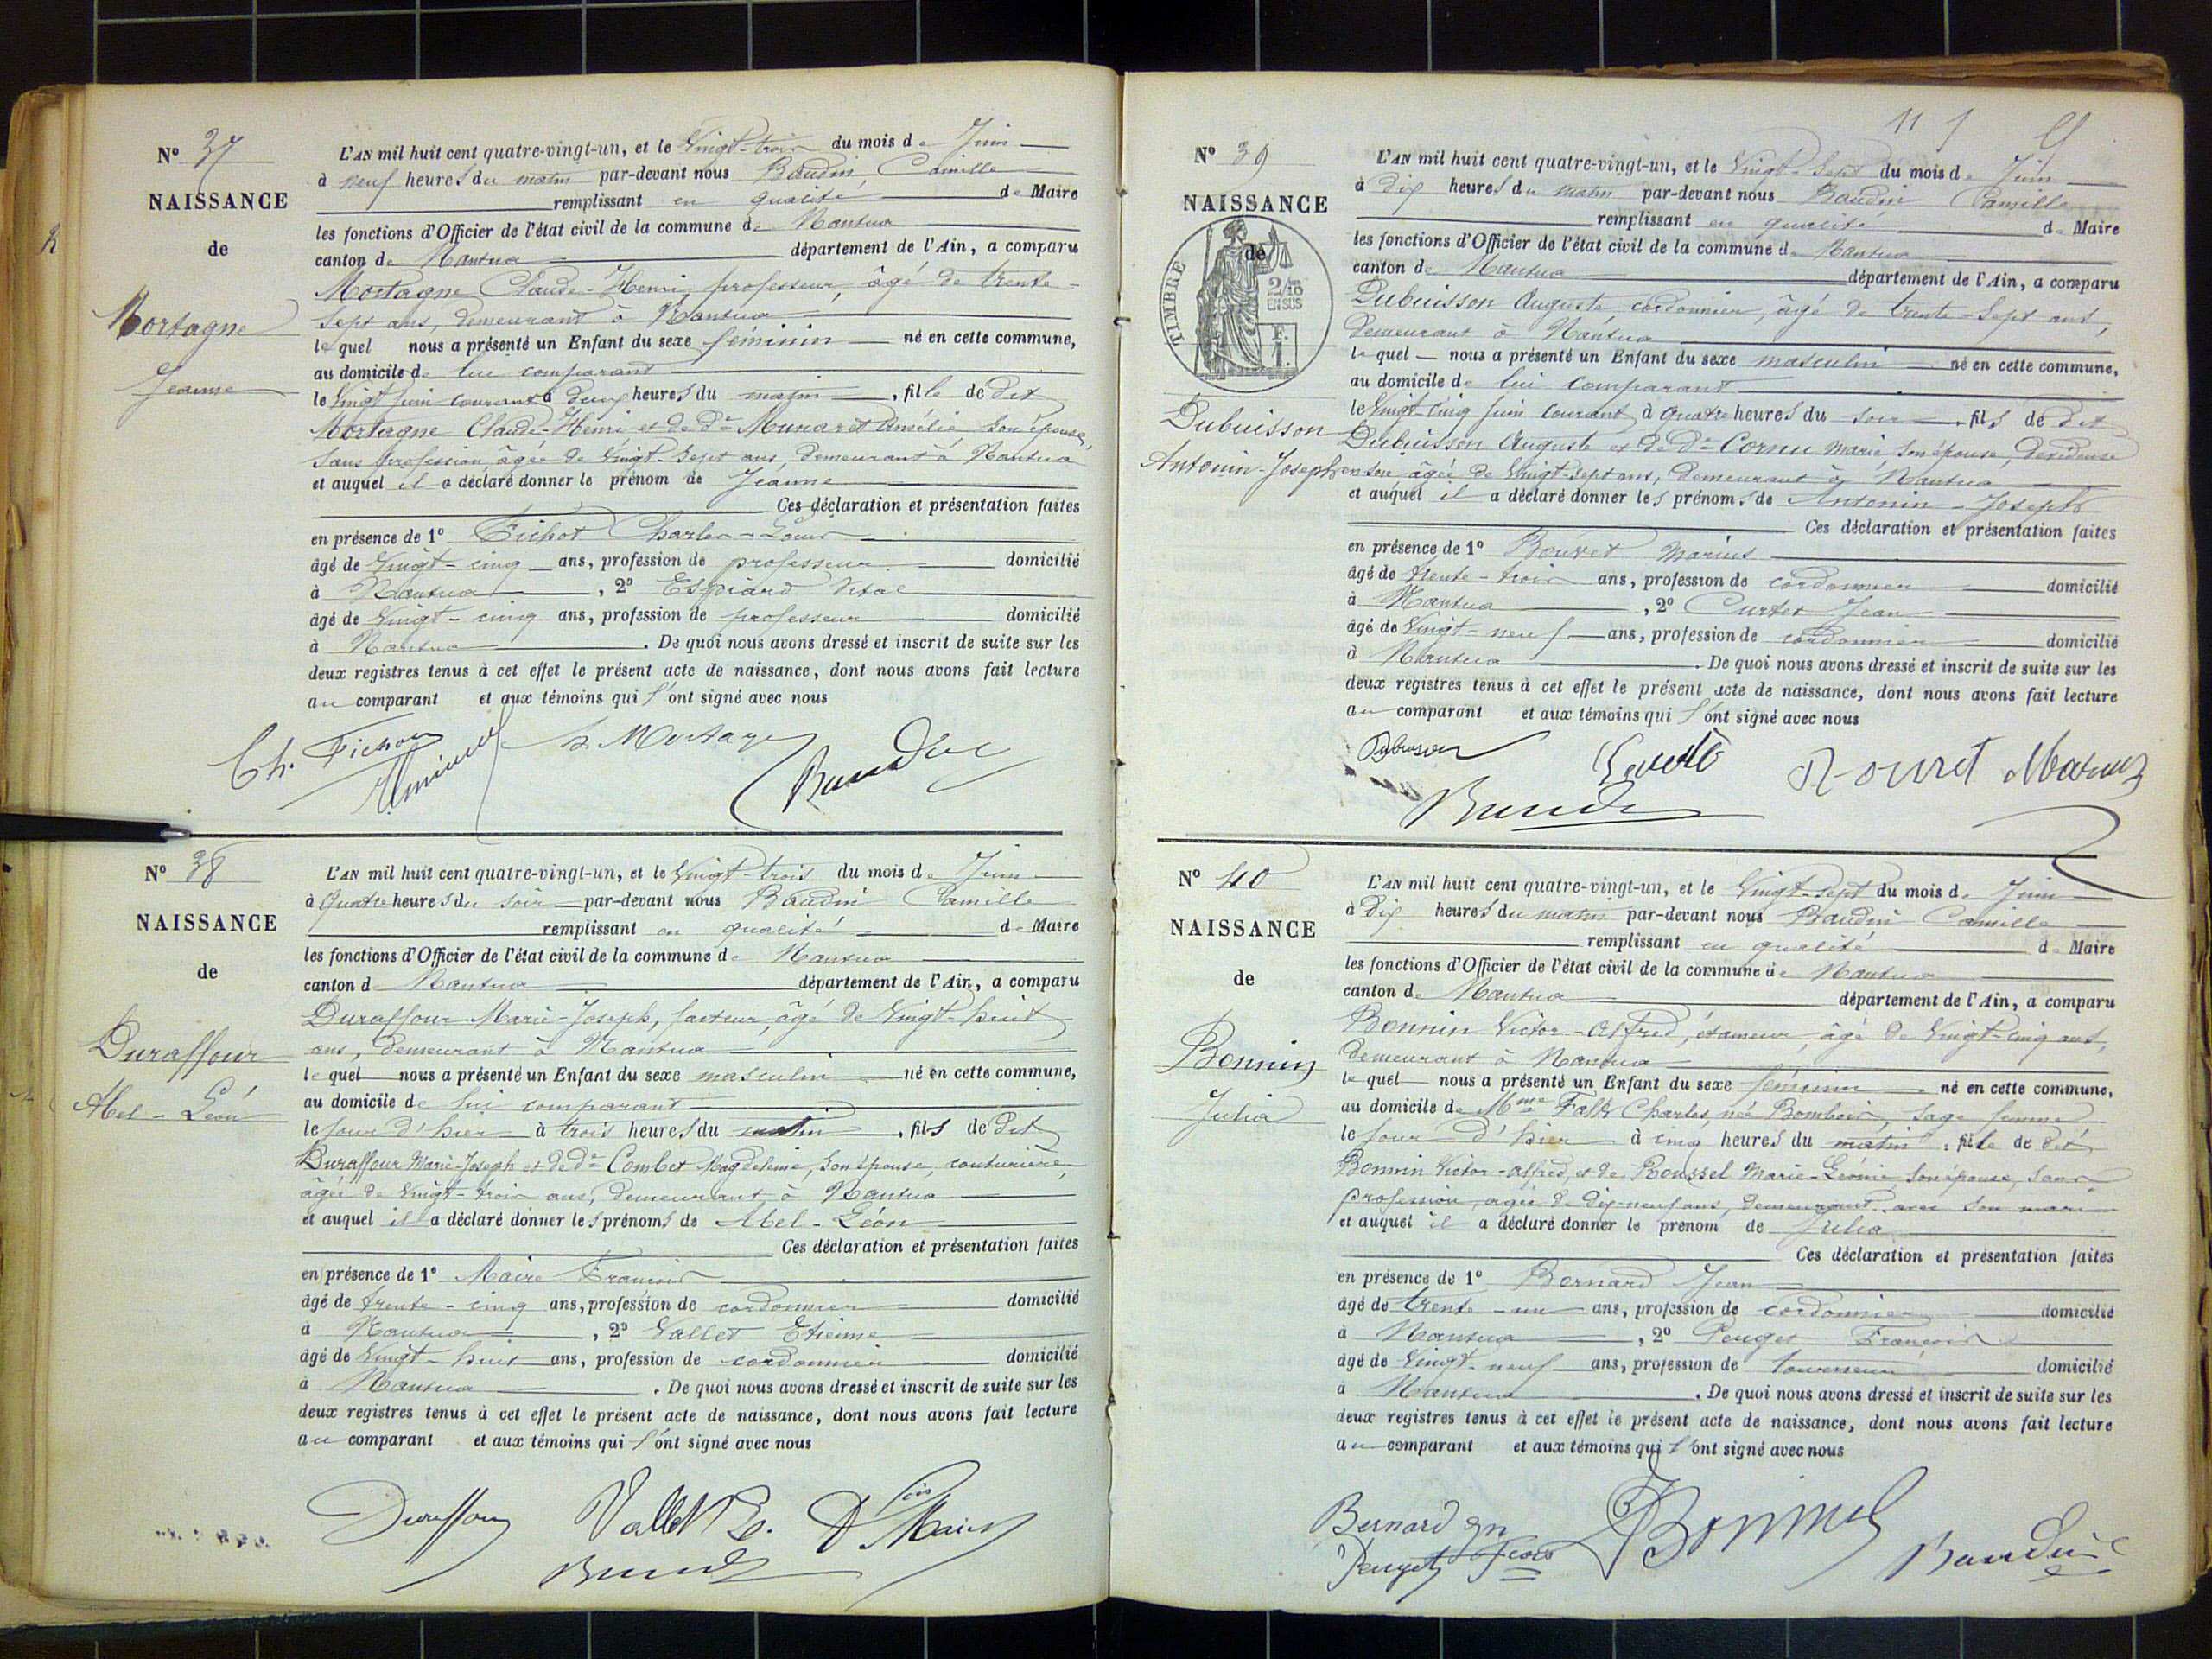 N° 37
NAISSANCE
de
Mortagne
Jeanne
L'AN mil huit cent quatre-vingt-un, et le Vingt-trois du mois de Juin
à neuf heures du matin par-devant nous Baudin, Camille
remplissant en qualité de Maire
les fonctions d'Officier de l'état civil de la commune de Nantua
canton de Nantua département de l'Ain, a comparu
Mortagne Claude-Henri, professeur, âgé de trente-
sept ans, demeurant à Nantua
lequel nous a présenté un Enfant du sexe féminin né en cette commune,
au domicile de lui comparant
le Vingt Juin courant à deux heures du matin, fille de dit
Mortagne Claude-Henri et de de Munaret Amélie son épouse,
sans profession, âgée de Vingt-sept ans, demeurant à Nantua
et auquel il a déclaré donner le prénom de Jeanne
Ces déclaration et présentation faites
en présence de 1° Fichot Charles-Louis
âgé de Vingt-cinq ans, profession de professeur domicilié
à Nantua, 2° Espiard Vital
âgé de Vingt-cinq ans, profession de professeur domicilié
à Nantua. De quoi nous avons dressé et inscrit de suite sur les
deux registres tenus à cet effet le présent acte de naissance, dont nous avons fait lecture
au comparant et aux témoins qui l'ont signé avec nous
Ch. Fichot
Mortagne
Baudin
N° 38
NAISSANCE
de
Duraffour
Abel-Léon
L'AN mil huit cent quatre-vingt-un, et le Vingt-trois du mois de Juin
à Quatre heures du soir par-devant nous Baudin Camille
remplissant en qualité de Maire
les fonctions d'Officier de l'état civil de la commune de Nantua
canton de Nantua département de l'Ain, a comparu
Duraffour Marie-Joseph, facteur, âgé de Vingt-huit
ans, demeurant à Nantua
lequel nous a présenté un Enfant du sexe masculin né en cette commune,
au domicile de lui comparant
le jour d'hier à trois heures du matin, fils de dit
Duraffour Marie-Joseph et de de Combet Magdeleine, son épouse, couturière,
âgée de Vingt-trois ans, demeurant à Nantua
et auquel il a déclaré donner les prénoms de Abel-Léon
Ces déclaration et présentation faites
en présence de 1° Maire François
âgé de trente-cinq ans, profession de cordonnier domicilié
à Nantua, 2° Vallet Etienne
âgé de Vingt-huit ans, profession de cordonnier domicilié
à Nantua. De quoi nous avons dressé et inscrit de suite sur les
deux registres tenus à cet effet le présent acte de naissance, dont nous avons fait lecture
au comparant et aux témoins qui l'ont signé avec nous
Duraffour Vallet E. Maire
Baudin
11
N° 39
NAISSANCE
de
TIMBRE
2/10
EN SUS
F.
1.
Dubuisson
Antonin-Joseph
L'AN mil huit cent quatre-vingt-un, et le Vingt-Sept du mois de Juin
à Dix heures du matin par-devant nous Baudin Camille
remplissant en qualité de Maire
les fonctions d'Officier de l'état civil de la commune de Nantua
canton de Nantua département de l'Ain, a comparu
Dubuisson Auguste, cordonnier, âgé de trente-sept ans,
demeurant à Nantua
lequel nous a présenté un Enfant du sexe masculin né en cette commune,
au domicile de lui comparant
le Vingt-cinq Juin courant à quatre heures du soir, fils de dit
Dubuisson Auguste et de de Cornu Marie, son épouse, dévideuse
en soie, âgée de Vingt-sept ans, demeurant à Nantua
et auquel il a déclaré donner les prénoms de Antonin-Joseph
Ces déclaration et présentation faites
en présence de 1° Bouvret Marius
âgé de trente-trois ans, profession de cordonnier domicilié
à Nantua, 2° Curtet Jean
âgé de Vingt-neuf ans, profession de cordonnier domicilié
à Nantua. De quoi nous avons dressé et inscrit de suite sur les
deux registres tenus à cet effet le présent acte de naissance, dont nous avons fait lecture
au comparant et aux témoins qui l'ont signé avec nous
Dubuisson
Marius
Baudin
N° 40
NAISSANCE
de
Bonnin
Julia
L'AN mil huit cent quatre-vingt-un, et le Vingt-sept du mois de Juin
à Dix heures du matin par-devant nous Baudin Camille
remplissant en qualité de Maire
les fonctions d'Officier de l'état civil de la commune de Nantua
canton de Nantua département de l'Ain, a comparu
Bonnin Victor-Alfred, étameur, âgé de Vingt-cinq ans,
demeurant à Nantua
lequel nous a présenté un Enfant du sexe féminin né en cette commune,
au domicile de Mme Falk Charles, née Bombois, sage femme
le jour d'hier à cinq heures du matin, fille de dit
Bonnin Victor-Alfred, et de Roussel Marie-Léonie, son épouse, sans
profession, âgée de dix-neuf ans, demeurant avec son mari
et auquel il a déclaré donner le prénom de Julia
Ces déclaration et présentation faites
en présence de 1° Bernard Jean
âgé de trente-un ans, profession de cordonnier domicilié
à Nantua, 2° Peuget François
âgé de Vingt-neuf ans, profession de tourneur domicilié
à Nantua. De quoi nous avons dressé et inscrit de suite sur les
deux registres tenus à cet effet le présent acte de naissance, dont nous avons fait lecture
au comparant et aux témoins qui l'ont signé avec nous
Bernard Jn Bonnin
Peuget Baudin